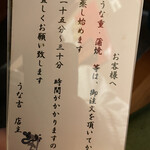 お客様へ
うな重・蒲焼 等は、御注文を頂いてか
蒸し始めます
二十五分〜三十分 時間がかかりますの
宜しくお願い致します
うな吉 店主